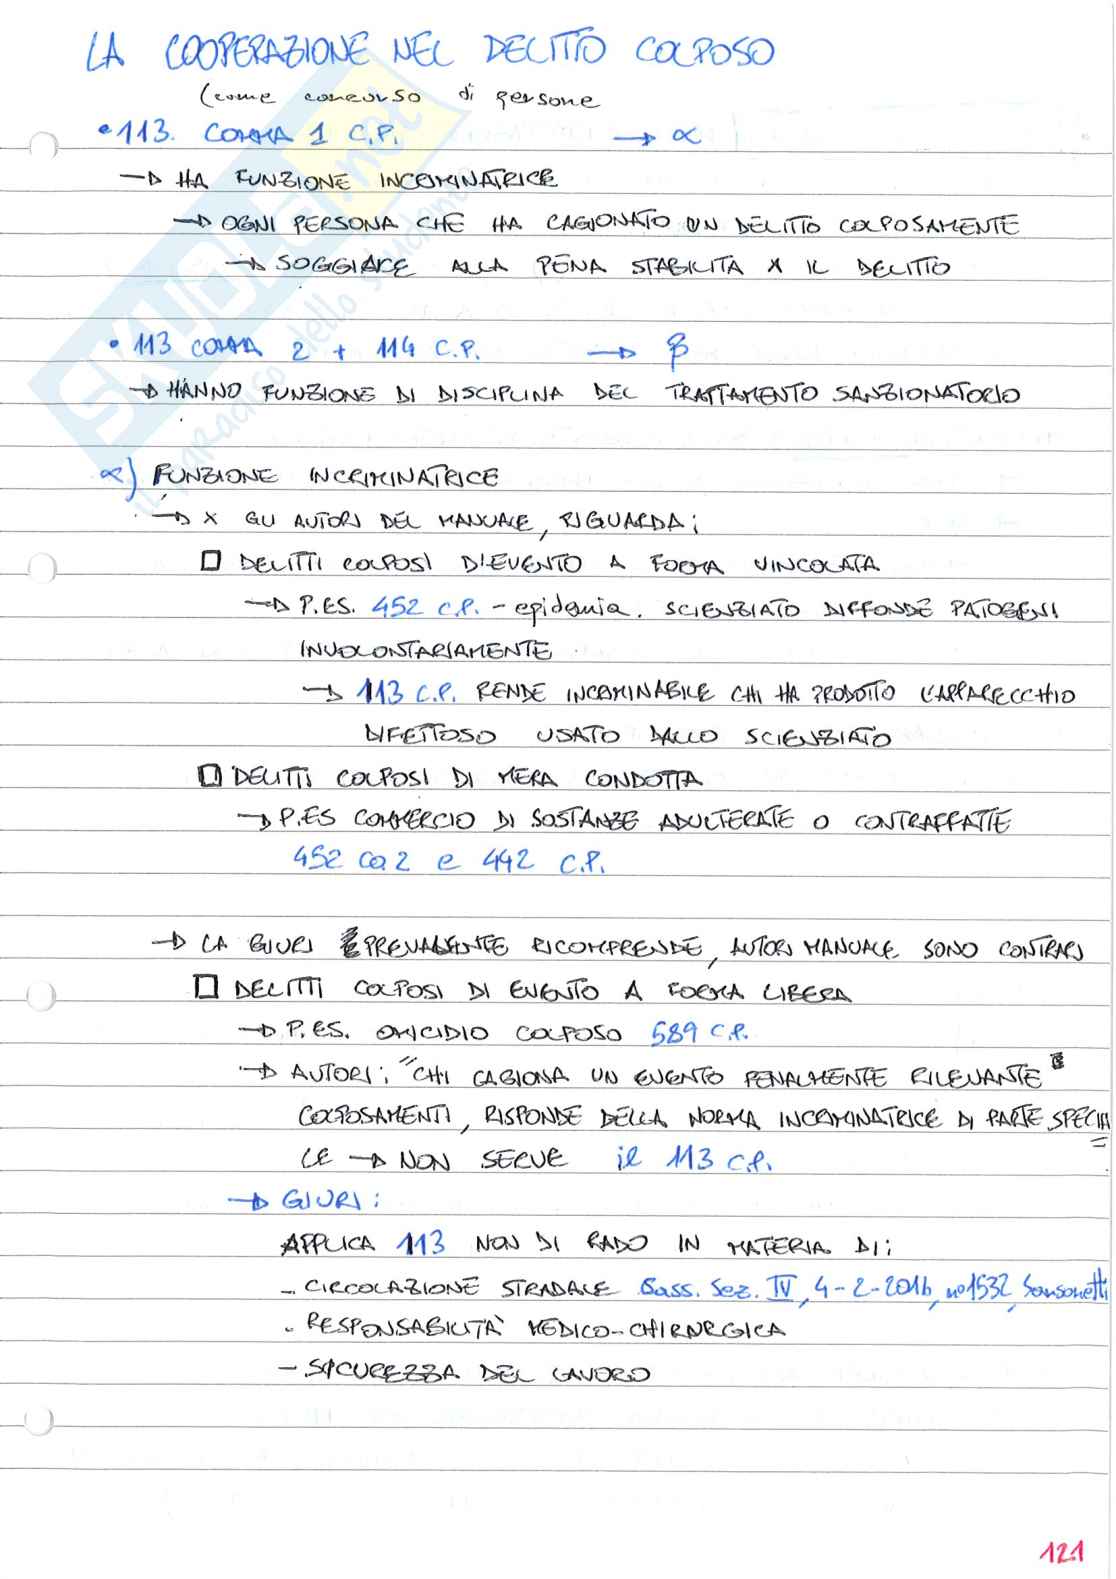 LA COOPERAZIONE NEL DELITTO COLPOSO
(come concorso di persone
• 113. COMMA 1 C.P. → α
→ HA FUNZIONE INCRIMINATRICE
→ OGNI PERSONA CHE HA CAGIONATO UN DELITTO COLPOSAMENTE
→ SOGGIACE ALLA PENA STABILITA X IL DELITTO
• 113 COMMA 2 + 114 C.P. → β
→ HANNO FUNZIONE DI DISCIPLINA DEL TRATTAMENTO SANZIONATORIO
α) FUNZIONE INCRIMINATRICE
→ X GLI AUTORI DEL MANUALE, RIGUARDA:
□ DELITTI COLPOSI D'EVENTO A FORMA VINCOLATA
→ P.ES. 452 C.P. - epidemia. SCIENZIATO DIFFONDE PATOGENI
INVOLONTARIAMENTE
→ 113 C.P. RENDE INCRIMINABILE CHI HA PRODOTTO L'APPARECCHIO
DIFETTOSO USATO DALLO SCIENZIATO
□ DELITTI COLPOSI DI MERA CONDOTTA
→ P.ES COMMERCIO DI SOSTANZE ADULTERATE O CONTRAFFATTE
452 co 2 e 442 C.P.
→ LA GIURI PREVALENTE RICOMPRENDE, AUTORI MANUALE SONO CONTRARI
□ DELITTI COLPOSI DI EVENTO A FORMA LIBERA
→ P.ES. OMICIDIO COLPOSO 589 C.P.
→ AUTORI: "CHI CAGIONA UN EVENTO PENALMENTE RILEVANTE
COLPOSAMENTI, RISPONDE DELLA NORMA INCRIMINATRICE DI PARTE SPECIA
LE → NON SERVE il 113 C.P.
→ GIURI:
APPLICA 113 NON DI RADO IN MATERIA DI:
- CIRCOLAZIONE STRADALE Cass. Sez. IV, 4-2-2016, n° 1532, Sansonetti
- RESPONSABILITÀ MEDICO-CHIRURGICA
- SICUREZZA DEL LAVORO
121
SKUOLA.net
il paradiso dello studente